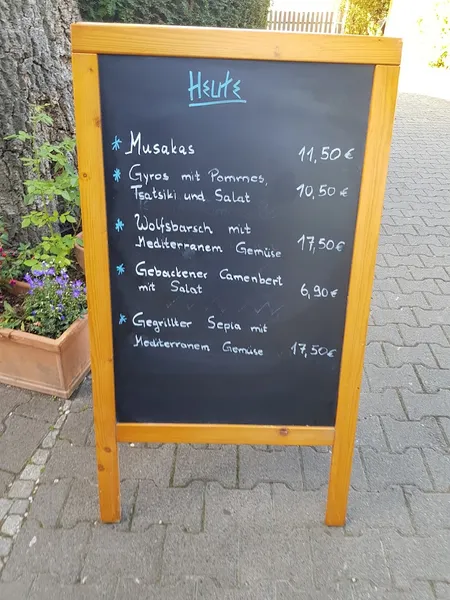 Heute
* Musakas 11,50 €
* Gyros mit Pommes,
Tsatsiki und Salat 10,50 €
* Wolfsbarsch mit
Mediterranem Gemüse 17,50 €
* Gebackener Camenbert
mit Salat 6,90 €
* Gegrillter Sepia mit
Mediterranem Gemüse 17,50 €